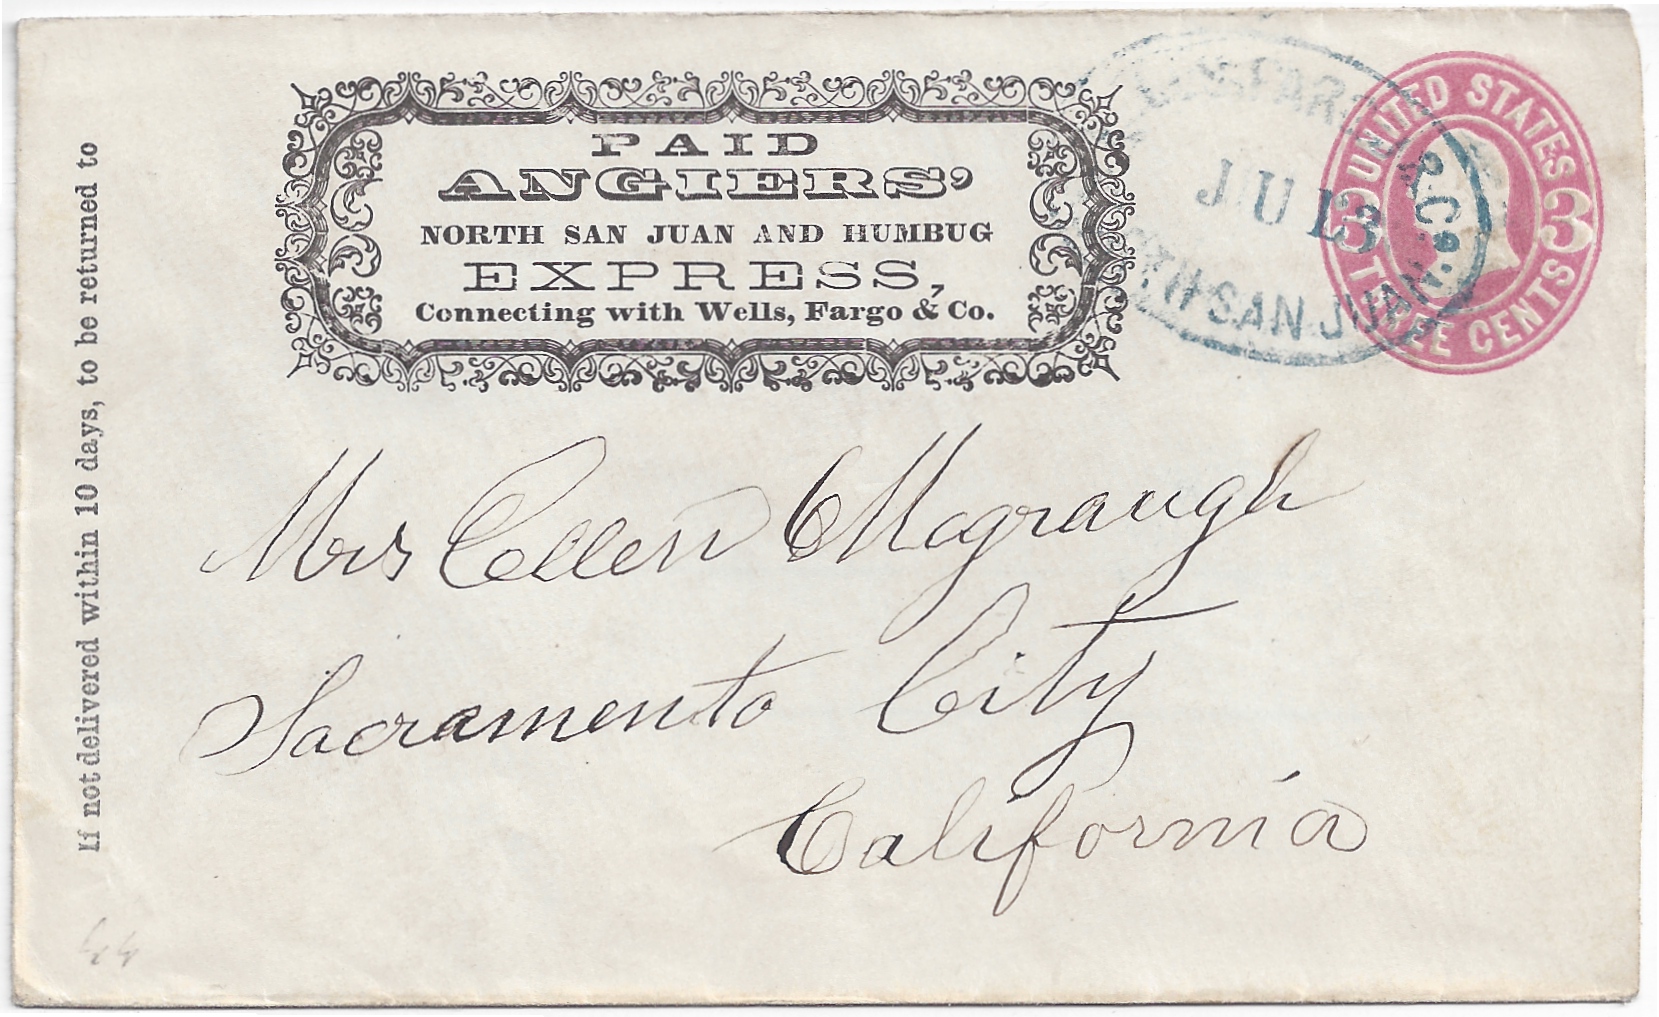 If not delivered within 10 days, to be returned to
PAID
ANGIERS'
NORTH SAN JUAN AND HUMBUG
EXPRESS,
Connecting with Wells, Fargo & Co.
& Co.
JUL 3
SAN JUAN
UNITED STATES
3 3
THREE CENTS
Mrs Ellen Mcgraugh
Sacramento City
California